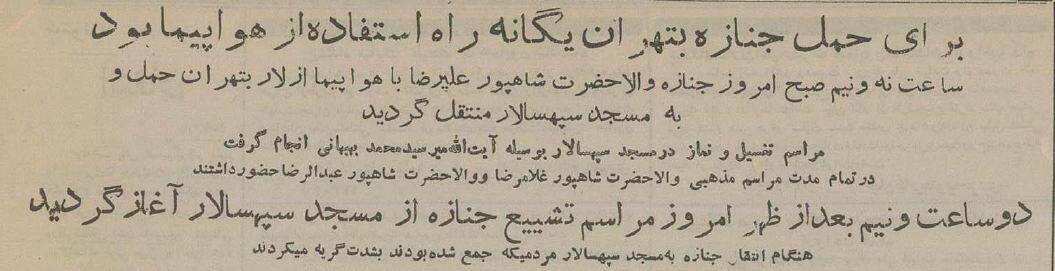 برای حمل جنازه بتهران یگانه راه استفاده از هواپیما بود
ساعت نه ونیم صبح امروز جنازه والاحضرت شاهپور علیرضا با هواپیما از لار بتهران حمل و
به مسجد سپهسالار منتقل گردید
مراسم تغسیل و نماز در مسجد سپهسالار بوسیله آیت‌الله میر سید محمد بهبهانی انجام گرفت
در تمام مدت مراسم مذهبی والاحضرت شاهپور غلامرضا و والاحضرت شاهپور عبدالرضا حضور داشتند
دو ساعت ونیم بعد از ظهر امروز مراسم تشییع جنازه از مسجد سپهسالار آغاز گردید
هنگام انتقال جنازه به مسجد سپهسالار مردمیکه جمع شده بودند بشدت گریه میکردند